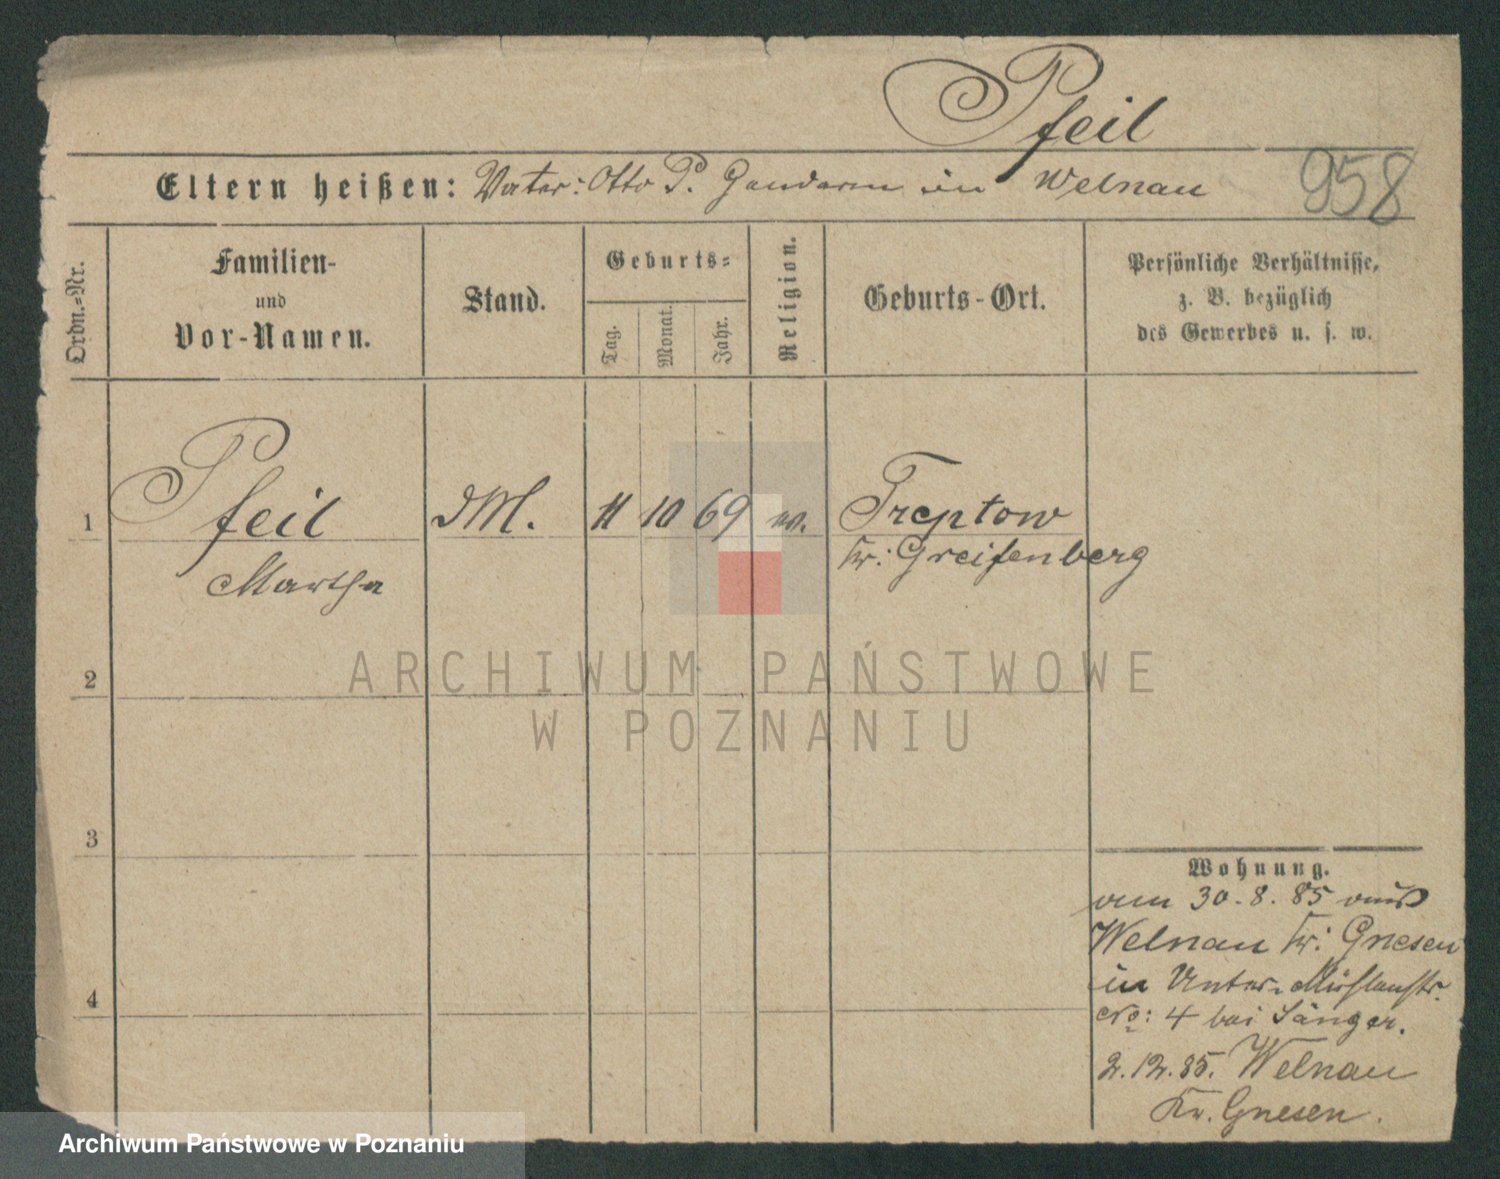 Pfeil
958
Eltern heißen: Vater: Otto P. Gendarm in Welnau
Ordn.-Nr.
Familien-
und
Vor-Namen.
Stand.
Geburts-
Tag.
Monat.
Jahr.
Religion.
Geburts-Ort.
Persönliche Verhältnisse,
z. B. bezüglich
des Gewerbes u. s. w.
1
Pfeil
Martha
11
10
69
ev.
Treptow
Kr: Greifenberg
2
3
4
Wohnung.
30. 8. 85 aus
Welnau Kr: Gnesen
in Unter-Mühlenstr.
No: 4 bei Sänger.
2. 12. 85. Welnau
Kr. Gnesen.
ARCHIWUM PAŃSTWOWE
W POZNANIU
Archiwum Państwowe w Poznaniu